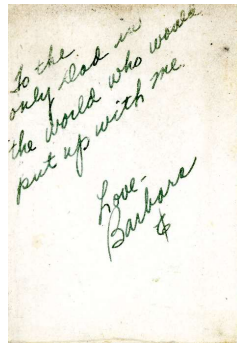 To the
only Dad in
the world who would
put up with me.
Love-
Barbara